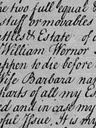 two full equal &
stuff or movables
ttles & Estate of
William Wornor
appen to die before
Wife Barbara na
harts of all my Es
d and in case my
ful Issue, It is my